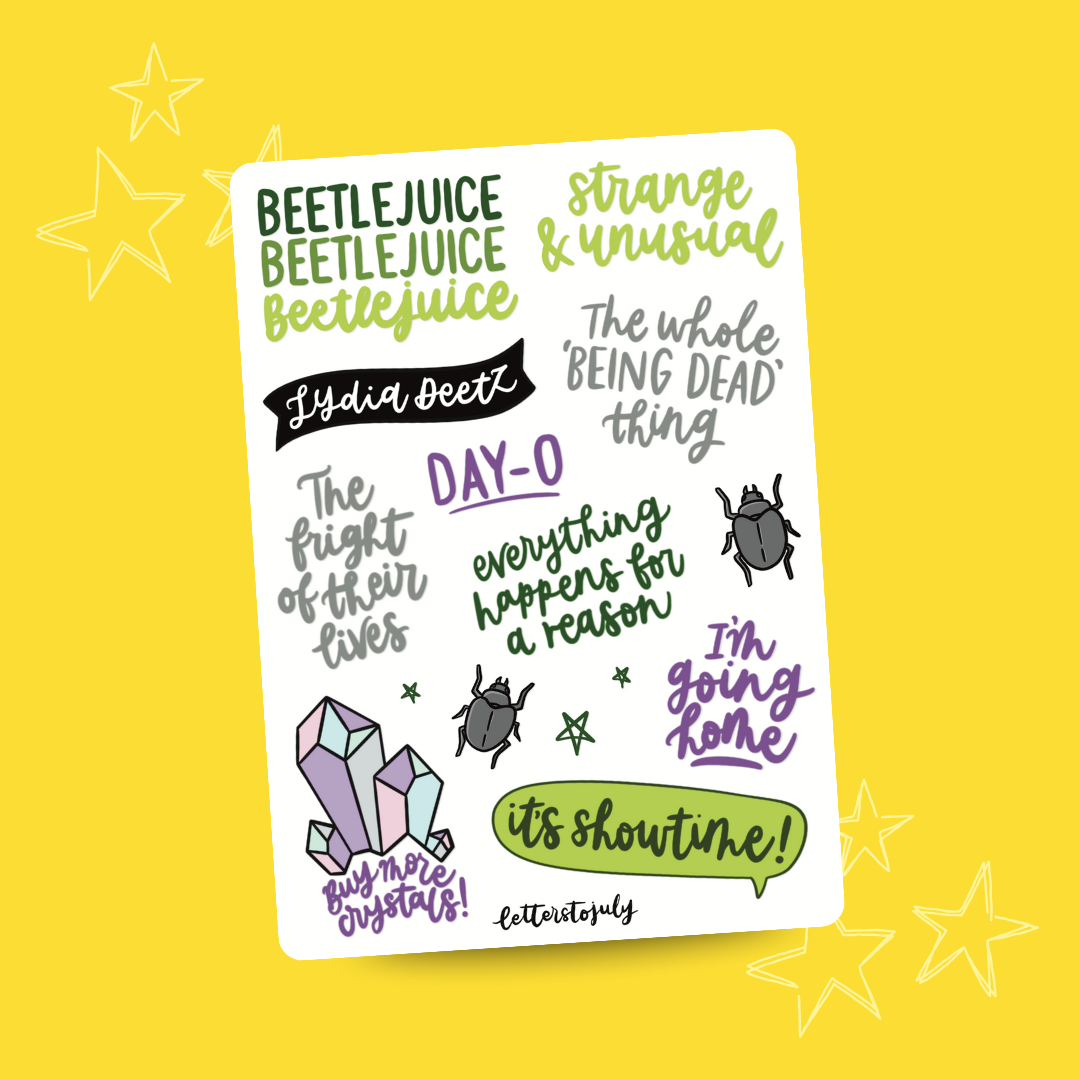 BEETLEJUICE
BEETLEJUICE
Beetlejuice
strange
& unusual
The whole
'BEING DEAD'
thing
Lydia Deetz
DAY-O
The
fright
of their
lives
everything
happens for
a reason
I'm
going
home
it's showtime!
Buy more
crystals!
letterstojuly